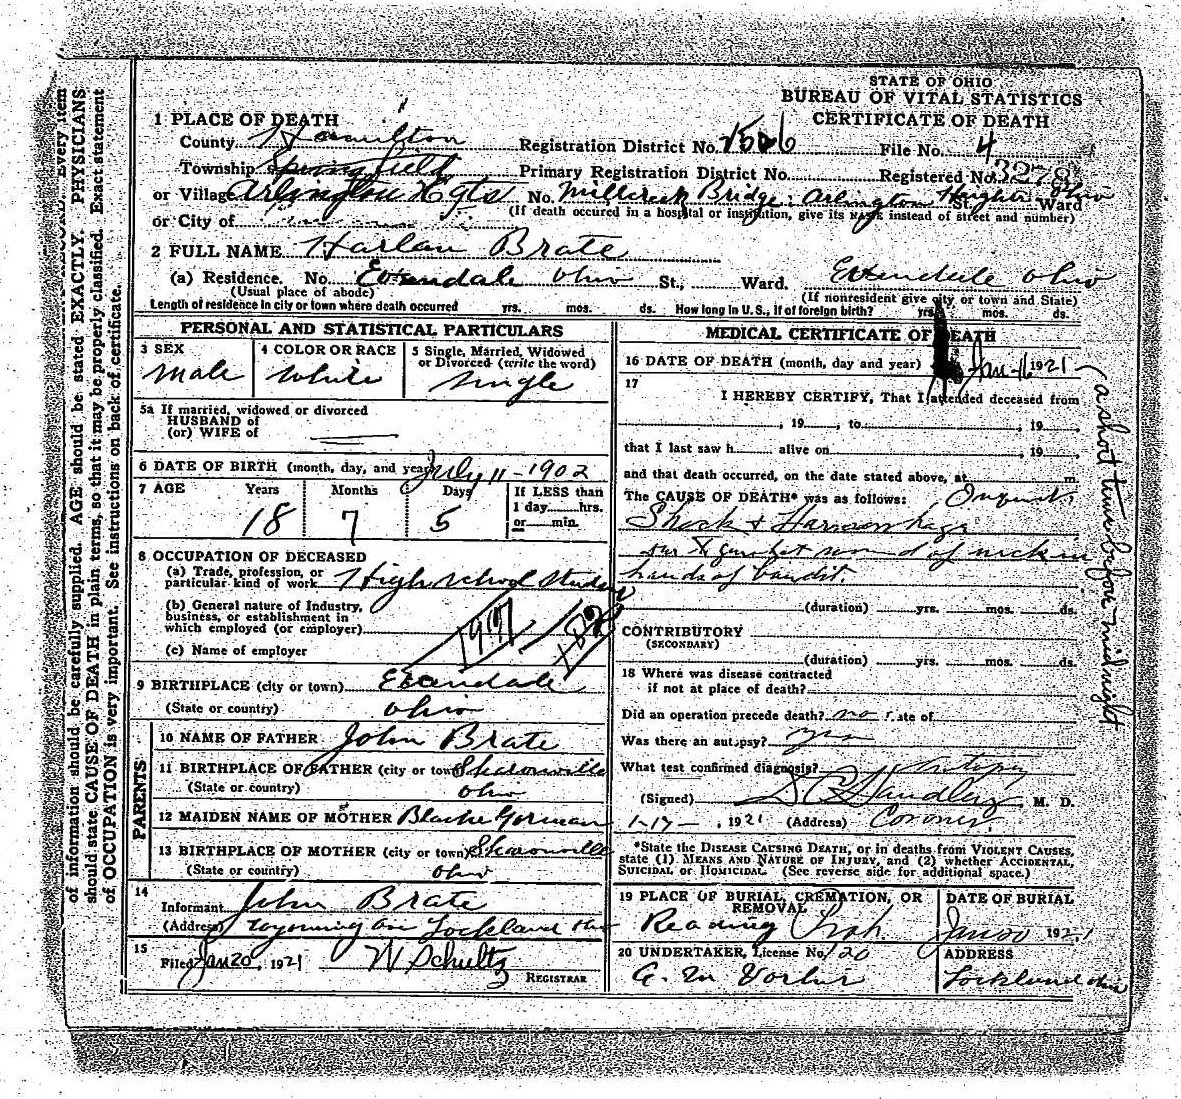 STATE OF OHIO
BUREAU OF VITAL STATISTICS
CERTIFICATE OF DEATH
1 PLACE OF DEATH
County Hamilton Registration District No. File No. 4
Township Springfield Primary Registration District No. Registered No. 3278
or Village Arlington Hgts No. Millcreek Bridge: Arlington Heights Ohio St., Ward
(If death occured in a hospital or institution, give its NAME instead of street and number)
or City of
2 FULL NAME Harlan Brate
(a) Residence. No. Evendale Ohio St., Ward. Evendale Ohio
(Usual place of abode) (If nonresident give city or town and State)
Length of residence in city or town where death occurred yrs. mos. ds. How long in U. S., if of foreign birth? yrs. mos. ds.
PERSONAL AND STATISTICAL PARTICULARS
3 SEX 4 COLOR OR RACE 5 Single, Married, Widowed
or Divorced (write the word)
Male White Single
5a If married, widowed or divorced
HUSBAND of
(or) WIFE of
6 DATE OF BIRTH (month, day, and year) July 11-1902
7 AGE Years Months Days If LESS than
1 day hrs.
or min.
18 7 5
8 OCCUPATION OF DECEASED
(a) Trade, profession, or
particular kind of work High School Student
(b) General nature of Industry,
business, or establishment in
which employed (or employer)
(c) Name of employer
9 BIRTHPLACE (city or town) Evendale
(State or country) Ohio
PARENTS
10 NAME OF FATHER John Brate
11 BIRTHPLACE OF FATHER (city or town) Sharonville
(State or country) Ohio
12 MAIDEN NAME OF MOTHER Gorman
13 BIRTHPLACE OF MOTHER (city or town) Sharonville
(State or country) Ohio
14
Informant John Brate
(Address) Wyoming Ave Lockland Ohio
15
Filed Jan 20, 1921 W Schultz
REGISTRAR
MEDICAL CERTIFICATE OF DEATH
16 DATE OF DEATH (month, day and year) Jan-16 1921
a short time before midnight
17
I HEREBY CERTIFY, That I attended deceased from
, 19 , to , 19
that I last saw h alive on , 19
and that death occurred, on the date stated above, at m.
The CAUSE OF DEATH* was as follows:
Shock & Hemorrhage
gunshot wound of neck in
hands of bandit.
(duration) yrs. mos. ds.
CONTRIBUTORY
(SECONDARY)
(duration) yrs. mos. ds.
18 Where was disease contracted
if not at place of death?
Did an operation precede death? no Date of
Was there an autopsy? yes
What test confirmed diagnosis? Autopsy
(Signed) D C Handley M. D.
1-17- , 1921 (Address) Coroner.
*State the DISEASE CAUSING DEATH, or in deaths from VIOLENT CAUSES,
state (1) MEANS AND NATURE OF INJURY, and (2) whether ACCIDENTAL,
SUICIDAL or HOMICIDAL. (See reverse side for additional space.)
19 PLACE OF BURIAL, CREMATION, OR
REMOVAL
DATE OF BURIAL
Reading Jan 20 1921
20 UNDERTAKER, License No. 120 ADDRESS
Lockland Ohio
Every item
of information should be carefully supplied. AGE should be stated EXACTLY. PHYSICIANS
should state CAUSE OF DEATH in plain terms, so that it may be properly classified. Exact statement
of OCCUPATION is very important. See instructions on back of certificate.